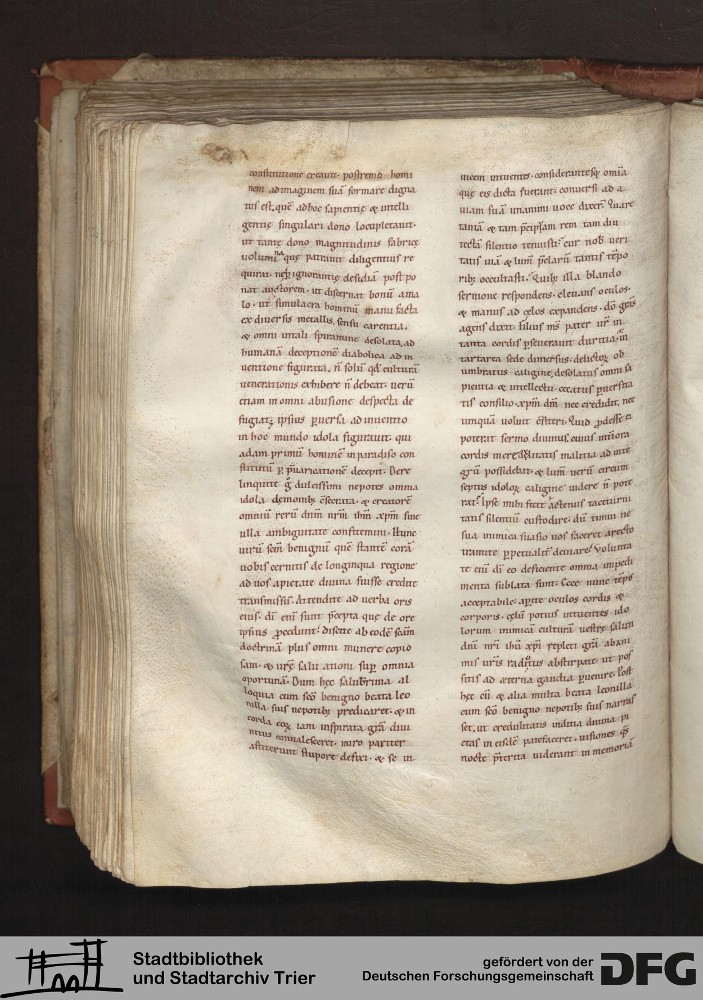 constitutione creauit. postremū homi
nem ad imaginem suā formare digna
tus est. quē ad hoc sapientię & intelli
gentię singulari dono locupletauit.
ut tantę dono magnitudinis fabricę
uolumina quę patrauit diligentius re
quirat. neq; ignorantię desidiā postpo
nat auctorem. ut discernat bonū a ma
lo. ut simulacra hominū manu facta
ex diuersis metallis, sensu carentia,
& omni uitali spiramine desolata, ad
humanā deceptionē diabolica ad in
uentione figurata, n̄ solū qđ culturā
uenerationis exhibere n̄ debeat. uerū
etiam in omni abusione despecta de
fugiat; ipsius puersa ad inuentio
in hoc mundo idola figurauit. qui
adam primū hominē in paradiso con
stitutū p p̄uaricationē decepit. Dere
linquite g̊ dulcissimi nepotes omnia
idola demonib; c̄secrata. & creatorē
omniū rerū dn̄m nr̄m ihm̄ xp̄m sine
ulla ambiguitate confitemini. Hunc
uirū sc̄m benignū quē stantē corā
uobis cernitis de longinqua regione
ad uos a pietate diuina fuisse credite
transmissū. Attendite ad uerba oris
eius. dī enī sunt p̄cepta quę de ore
ipsius ꝓcedunt. discite ab eodē sc̄am
doctrinā plus omni munere copio
sam. & urę saluationi sup̄ omnia
oportunā. Dum hęc saluberrima al
loquia cum sc̄o benigno beata leo
nilla suis nepotib; predicaret. & in
corda eoꝝ iam inspirata grā diui
nitus conualesceret. miro pariter
astiterunt stupore defixi. & se in
uicem intuentes. considerantesq; om̄ia
quę eis dicta fuerant. conuersi ad a
uiam suā unanimi uoce dixer̄. Quare
tantā & tam p̄cipuam rem tam diu
tecta silentio tenuisti? cur nob̄ ueri
tatis uiā & lum̄ p̄clarū tantis tēpo
rib; occultasti. Quib; illa blando
sermone respondens. eleuans oculos.
& manus ad cęlos expandens. dō grās
agens dixit. filius mīs pater ur̄ in
tanta cordis pseuerauit duritia. in
tartarea sede dimersus. delictoꝝ ob
umbratus caligine, desolatus omni sa
pientia & intellectu. cecatus puersita
tis consilio. xp̄m dn̄i nec credidit, nec
umquā uoluit c̄fiteri. Quid ꝓdesse ei
poterat sermo diuinus, cuius int̄iora
cordis incredulitatis malitia ad inte
grū possidebat. & lum̄ uerū circum
septus idoloꝝ caligine uidere n̄ pote
rat? Ipse mihi fecit actenus taciturni
tatis silentiū custodire. dū timui ne
sua inimica suasio uos faceret a recto
tramite ppetualit̄ deuiare. Volunta
te enī dī eo deficiente omnia impedi
menta sublata sunt. Ecce nunc tēps
acceptabile. apite oculos cordis &
corporis. cęlū potius intuentes ido
lorum inimicā culturā uestrę saluti
dn̄i nr̄i ihū xp̄i repleti grā ab ani
mis uris radicitus abstirpate. ut pos
sitis ad ęterna gaudia puenire. Post
hęc eū & alia multa beata leonilla
cum sc̄o benigno nepotib; suis narras
set, ut credulitatis inditia diuina pi
etas in eisdē patefaceret. uisiones qs
nocte p̄terita uiderant in memoriā
Stadtbibliothek
und Stadtarchiv Trier
gefördert von der
Deutschen Forschungsgemeinschaft
DFG